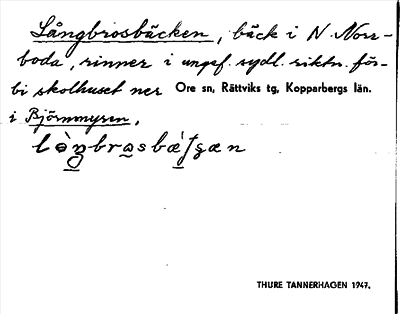 Långbrosbäcken, bäck i N. Norr-
boda, rinner i ungef. sydl. riktn. för-
bi skolhuset ner Ore sn, Rättviks tg, Kopparbergs län.
i Björnmyren,
THURE TANNERHAGEN 1947.